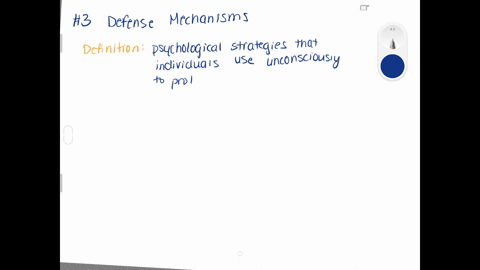 #3 Defense Mechanisms
Definition: psychological strategies that
individuals use unconsciously
to prol